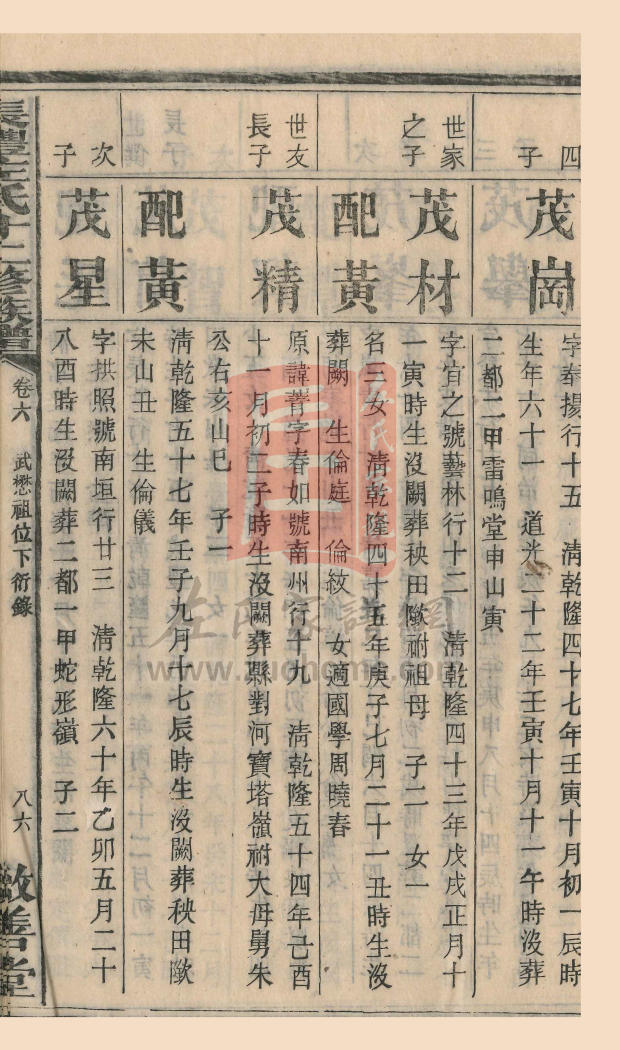 四子
茂崗
字奉揚行十五　清乾隆四十七年壬寅十月初一辰時
生年六十一　道光二十二年壬寅十月十一午時沒葬
二都二甲雷鳴堂申山寅
世家之子
茂材
字宜之號藝林行十二　清乾隆四十三年戊戌正月十
一寅時生沒闕葬秧田墘祔祖母　子二　女一
配黃
名三女　清乾隆四十五年庚子七月二十一丑時生沒
葬闕　生倫庭　倫紋　女適國學周曉春
世友長子
茂精
原諱菁字春如號南州行十九　清乾隆五十四年己酉
十一月初三子時生沒闕葬縣對河寶塔嶺祔大母舅朱
公右亥山巳　子一
配黃
清乾隆五十七年壬子九月十七辰時生沒闕葬秧田墘
未山丑　生倫儀
次子
茂星
字拱照號南垣行廿三　清乾隆六十年乙卯五月二十
八酉時生沒闕葬二都一甲蛇形嶺　子二
長禮王氏十二修族譜
卷六　武懋祖位下衍錄
八六
敦善堂
左氏家譜網
www.zuonomi.com